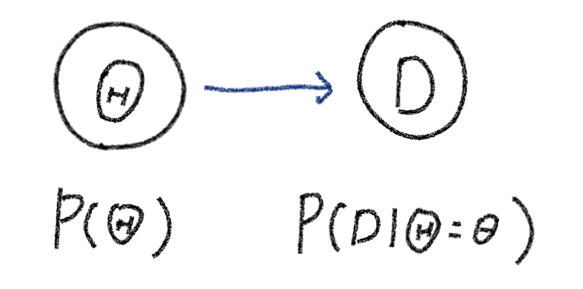 Θ D
P(Θ) P(D|Θ=θ)